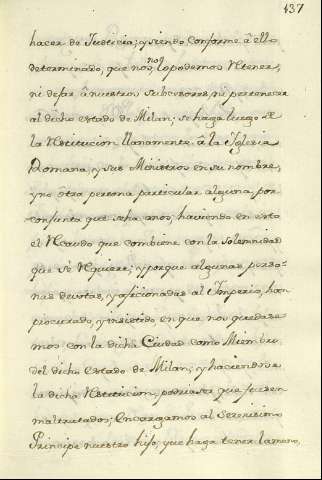 137
hacer de Justicia; y siendo conforme â ello
determinado, que nos, no lo podemos retener,
ni dejar â nuestros subcesores, ni pertenecer
al dicho estado de Milan; se haga luego
la restitucion llanamente â la Iglesia
Romana, y sus Ministros en su nombre,
y no ôtra persona particular alguna, por
confunta que seha anos, haviendo en esto
el recaudo que combiene con la solemnidad
que se requiere; y porque algunas perso-
nas devotas, y aficionadas al Imperio, han
procurado, y insistido en que nos quedase-
mos con la dicha Ciudad como Miembro
del dicho estado de Milan; y haciendose
la dicha restitucion, podria ser que fuesen
maltratados; encargamos al Serenisimo
Principe nuestro hijo, que haga tener la mano,